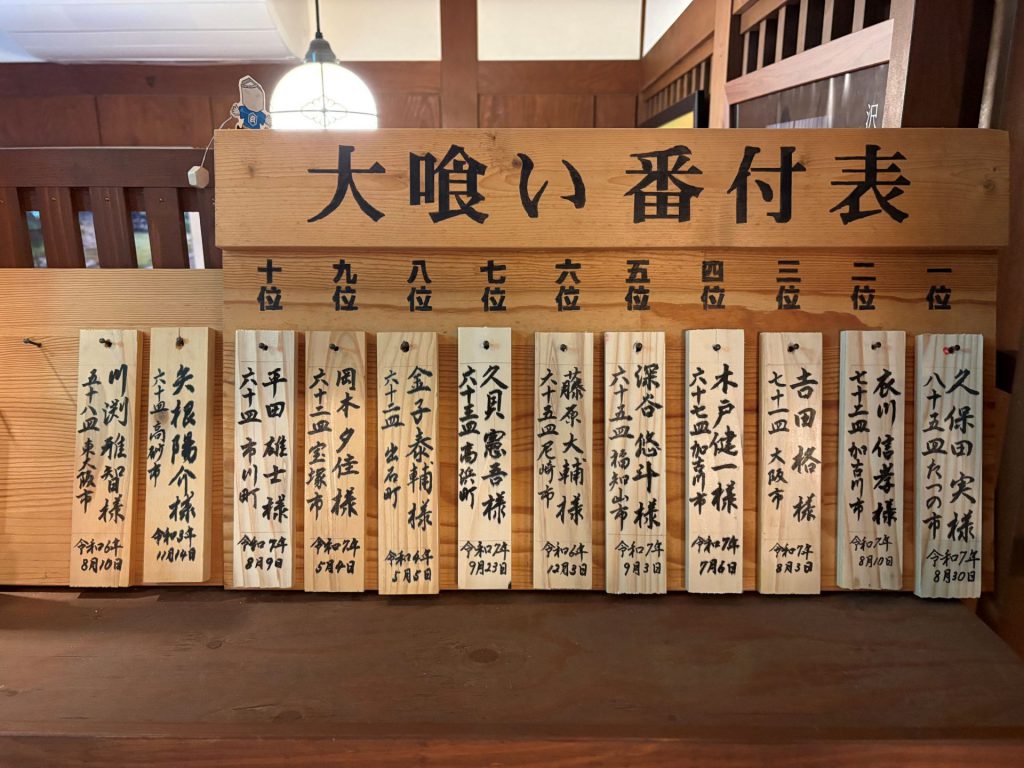 大喰い番付表
一位
久保田実様
八十五皿 たつの市
令和7年
8月30日
二位
衣川信孝様
七十二皿 加古川市
令和7年
8月10日
三位
吉田格様
七十一皿 大阪市
令和7年
8月3日
四位
木戸健一様
六十七皿 加古川市
令和7年
7月6日
五位
深谷悠斗様
六十五皿 福知山市
令和7年
9月3日
六位
藤原大輔様
六十五皿 尼崎市
令和6年
12月3日
七位
久貝憲吾様
六十三皿 高浜町
令和7年
9月23日
八位
金子泰輔様
六十二皿 出石町
令和4年
5月5日
九位
岡本夕佳様
六十二皿 宝塚市
令和7年
5月4日
十位
平田雄士様
六十皿 市川町
令和7年
8月9日
矢根陽介様
六十皿 高砂市
令和3年
11月14日
川渕雅智様
五十八皿 東大阪市
令和6年
8月10日
沢